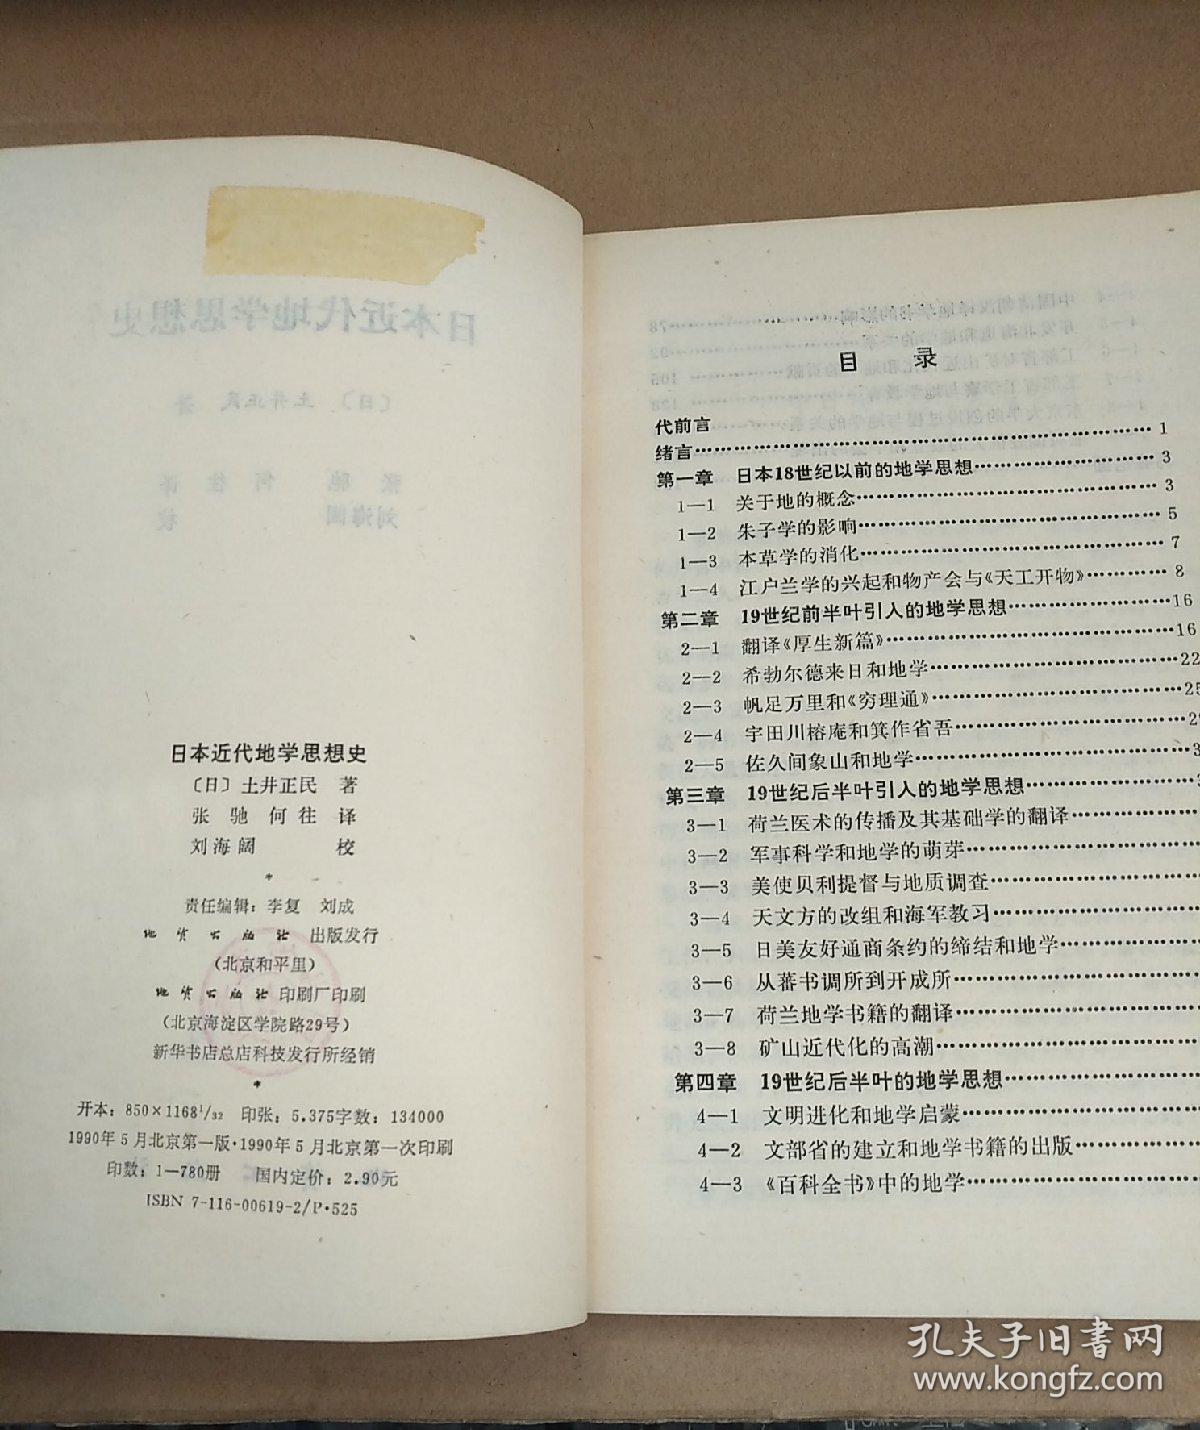 日本近代地学思想史
〔日〕土井正民 著
张驰 何往 译
刘海阔 校
*
责任编辑：李复 刘成
地质出版社 出版发行
（北京和平里）
地质出版社 印刷厂印刷
（北京海淀区学院路29号）
新华书店总店科技发行所经销
*
开本：850×1168¹/₃₂ 印张：5.375字数：134000
1990年5月北京第一版·1990年5月北京第一次印刷
印数：1—780册 国内定价：2.90元
ISBN 7-116-00619-2/P·525
目 录
代前言
绪言…………1
第一章 日本18世纪以前的地学思想…………3
1—1 关于地的概念…………3
1—2 朱子学的影响…………5
1—3 本草学的消化…………7
1—4 江户兰学的兴起和物产会与《天工开物》…………8
第二章 19世纪前半叶引入的地学思想…………16
2—1 翻译《厚生新篇》…………16
2—2 希勃尔德来日和地学…………22
2—3 帆足万里和《穷理通》…………25
2—4 宇田川榕庵和箕作省吾…………
2—5 佐久间象山和地学…………
第三章 19世纪后半叶引入的地学思想…………
3—1 荷兰医术的传播及其基础学的翻译…………
3—2 军事科学和地学的萌芽…………
3—3 美使贝利提督与地质调查…………
3—4 天文方的改组和海军教习…………
3—5 日美友好通商条约的缔结和地学…………
3—6 从蕃书调所到开成所…………
3—7 荷兰地学书籍的翻译…………
3—8 矿山近代化的高潮…………
第四章 19世纪后半叶的地学思想…………
4—1 文明进化和地学启蒙…………
4—2 文部省的建立和地学书籍的出版…………
4—3 《百科全书》中的地学…………
孔夫子旧书网
www.kongfz.com